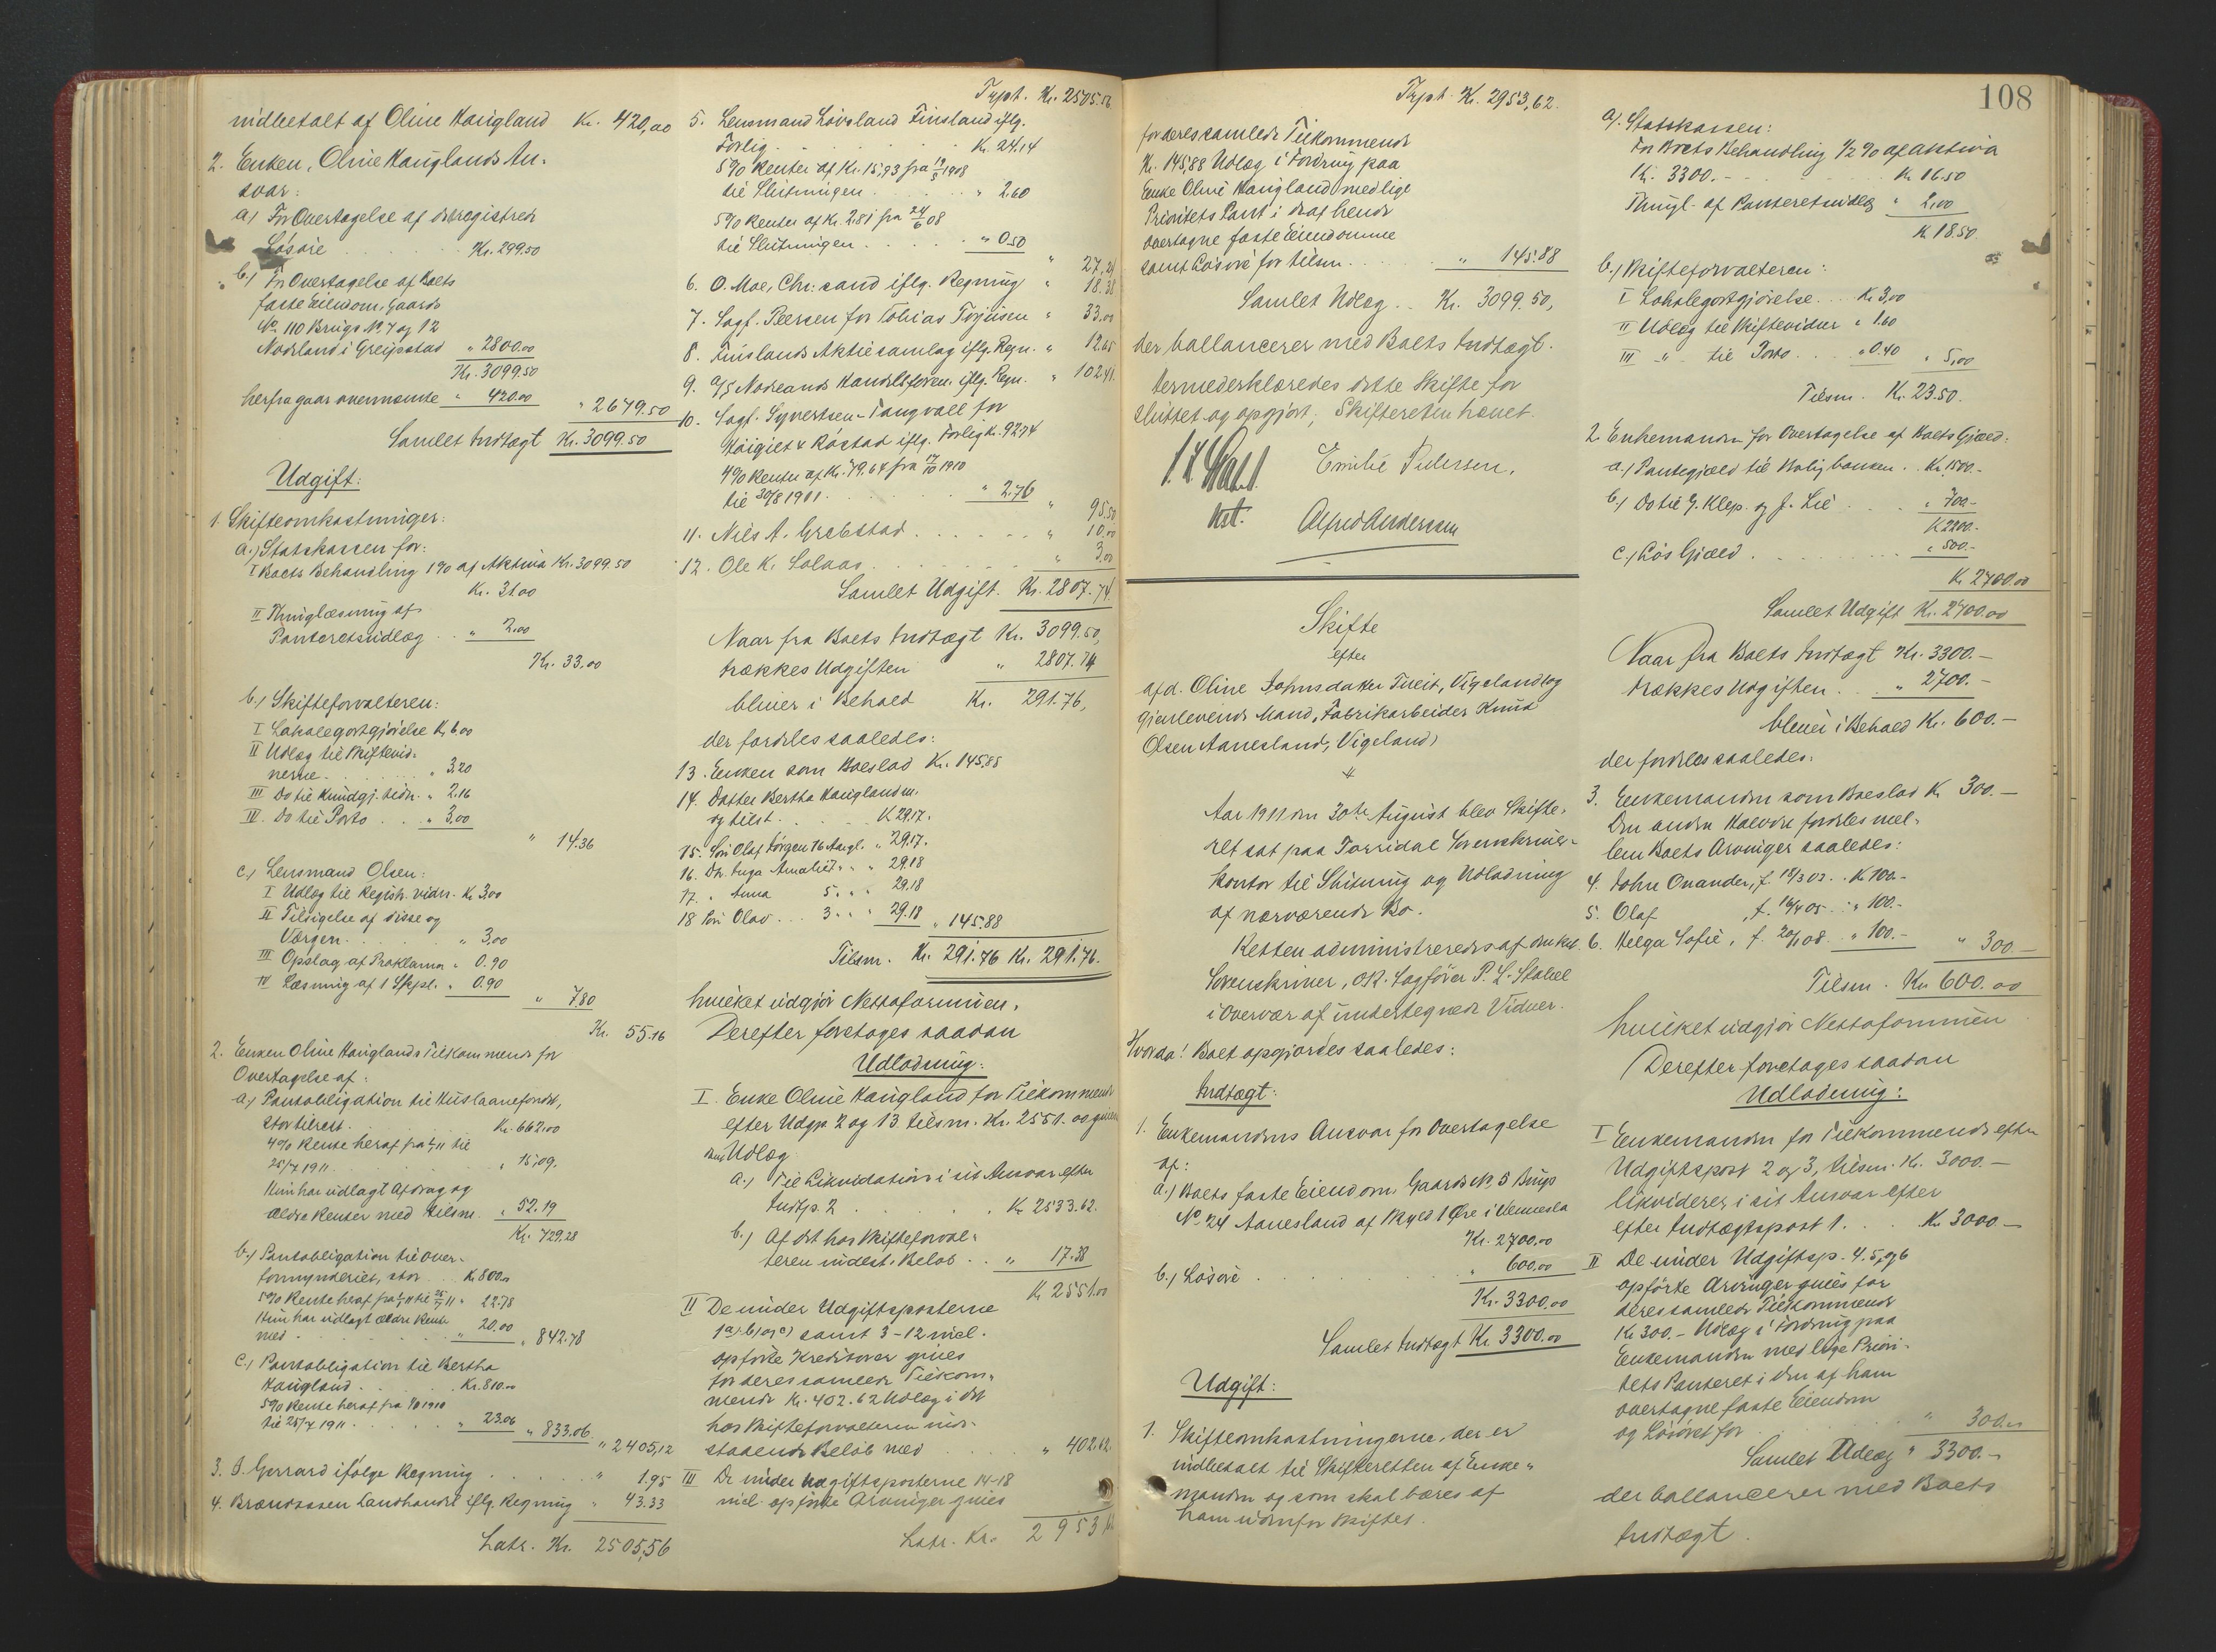 indbetalt af Oline Haugland Kr. 420,00
2. Enken, Oline Hauglands An-
svar:
a) For Overtagelse af det registrerede
Løsøre Kr. 299.50
b.) For Overtagelse af Boets
faste Eiendom, Gaards
No. 110 Brugs No. 7 og 12
Nordland i Greipstad " 2800.00
Kr. 3099.50
herfra gaar ovennævnte " 420.00 " 2679.50
Samlet Indtægt Kr. 3099.50
Udgift:
1. Skifteomkostninger:
a.) Statskassen for:
I Boets Behandling 1% af Aktiva Kr. 3099.50
Kr. 31.00
II Thinglæsning af
Panteretsudlæg " 2.00
Kr. 33.00
b.) Skifteforvalteren:
I Lokalegodtgjørelse Kr. 6.00
II Udlæg til Skiftevid-
nerne " 3.20
III Do til Kundgj. tidn. " 2.16
IV. Do til Porto " 3.00
" 14.36
c.) Lensmand Olsen:
I Udlæg til Registr. vidn. Kr. 3.00
II Tilsigelse af disse og
Værgen " 3.00
III Opslag af Proklama " 0.90
IV Læsning af 1 Expl. " 0.90
" 7.80
Kr. 55.16
2. Enken Oline Hauglands Tilkommende for
Overtagelse af:
a.) Pantobligation til Huslaanefondet,
stor tilrest Kr. 662.00
4% Rente heraf fra 1/1 11 til
25/7 1911 " 15.09.
Hun har udlagt Afdrag og
ældre Renter med tilsm. " 52.19
Kr. 729.28
b.) Pantobligation til Over-
formynderiet, stor Kr. 800.00
5% Rente heraf fra 1/1 11 til 25/7 11 " 22.78
Hun har udlagt ældre Rente
med " 20.00 " 842.78
c.) Pantobligation til Bertha
Haugland Kr. 810.00
5% Rente heraf fra 1910
til 25/7 1911 " 23.06 " 833.06
" 2405,12
3. Gerrard ifølge Regning " 1.95
4. Brændaasen Landhandel iflg. Regning " 43.33
Latr. Kr. 2505,56
Trspt. Kr. 2505.56
5. Lensmand Løvsland Finsland iflg.
Forlig Kr. 24.14
5% Renter af Kr. 15,93 fra 1908
til Slutningen " 2.60
5% Renter af Kr. 2.81 fra 24/6 08
til Slutningen " 0.50
" 27,24
6. O. Moe, Chr: sand iflg. Regning " 18.38
7. Sagf. Peersen for Tobias Torjusen " 33.00
8. Finslands Aktiesamlag iflg. Regn. " 12.65
9. A/S Nodelands Handelsforen. iflg. Regn. " 102.41
10. Sagf. Syvertsen-Tangvall for
Høigiet & Røstad iflg. Forlig Kr. 92.74
4% Renter af Kr. 79.64 fra 17/10 1910
til 30/8 1911 " 2.76
" 95.50
11. Niels A. Grebstad " 10.00
12. Ole K. Solaas " 3.00
Samlet Udgift. Kr. 2807.74
Naar fra Boets Indtægt Kr. 3099.50,
trækkes Udgiften " 2807.74
bliver i Behold Kr. 291.76,
der fordeles saaledes:
13. Enken som Boeslod Kr. 145.88
14. Datter Bertha Haugland m.
og tilst. K 29.17.
15. Søn Olaf Jørgen 16 Aar gl. " 29.17.
16. Dtr. Inga Amalie " " 29.18
17. " Anna 5 " " 29.18
18 Søn Olav 3 " " 29.18 " 145.88
Tilsm. Kr. 291.76 Kr. 291.76.
hvilket udgjør Nettoformuen.
Derefter foretoges saadan
Udlodning:
I. Enke Oline Haugland for Tilkommende
efter Udgp. 2 og 13 tilsm. Kr. 2551.00 gives
Udlæg
a.) Til Likvidation i sit Ansvar efter
Indtp. 2 Kr. 2533.62.
b.) Af det hos Skifteforval-
teren indest. Beløb " 17.38
K 2551.00
II De under Udgiftsposterne
1 a) b) og c) samt 3-12 incl.
opførte Kreditorer gives
for deres samlede Tilkom-
mende Kr. 402.62 Udlæg i det
hos Skifteforvalteren ind-
staaende Beløb med " 402.62
III De under Udgiftsposterne 14-18
incl. opførte Arvinger gives
Latr. Kr. 2953
Trspt. Kr. 2953,62.
for deres samlede Tilkommende
Kr. 145,88 Udlæg i Fordring paa
Enke Oline Haugland med lige
Prioritets Pant i de af hende
overtagne faste Eiendomme
samt Løsøre for tilsm. " 145.88
Samlet Udlæg Kr. 3099.50,
der ballancerer med Boets Indtægt.
Hermed erklæredes dette Skifte for
sluttet og opgjort; Skifteretten hævet.
Emilie Pedersen,
kst. Alfred Andersen
Skifte
efter
afd. Oline Johnsdatter Tveit, Vigeland og
gjenlevende Mand, Fabrikarbeider Knud
Olsen Aanesland, Vigeland)
Aar 1911 den 30te August blev Skifte-
ret sat paa Torridal Sorenskriver-
kontor til Slutning og Udlodning
af nærværende Bo.
Retten administreredes af den kst.
Sorenskriver, O.R. Sagfører P. L. Stabel
i Overvær af undertegnede Vidner.
Hvorda! Boet opgjordes saaledes:
Indtægt:
1. Enkemandens Ansvar for Overtagelse
af:
a.) Boets faste Eiendom, Gaards No. 5 Brugs
No. 24 Aanesland af Skyld 1 Øre i Vennesla
Kr. 2700.00
b.) Løsøre " 600.00
Kr. 3300.00
Samlet Indtægt Kr. 3300.00
Udgift:
1. Skifteomkostningerne, der er
indbetalt til Skifteretten af Enke-
manden og som skal bæres af
ham udenfor Skiftet.
108
a). Statskassen:
For Boets Behandling 1/2 % af Aktiva
Kr. 3300.- Kr. 16.50
Thingl. af Panteretsudlæg " 2,00
K 18.50.
b.) Skifteforvalteren:
I Lokalegodtgjørelse Kr. 3,00
II Udlæg til Skiftevidner " 1.60
III " til Porto " 0.40 " 5,00
Tilsm. Kr. 23.50.
2. Enkemanden for Overtagelse af Boets Gjæld:
a.) Pantegjæld til Boligbanken Kr. 1500.-
b.) Do til G. Klep og J. Lie " 700.-
K 2200.-
c.) Løs Gjæld " 500.-
K 2700.00
Samlet Udgift Kr. 2700.00
Naar fra Boets Indtægt Kr. 3300.-
trækkes Udgiften " 2700.-
bliver i Behold Kr. 600.-
der fordeles saaledes:
3. Enkemanden som Boeslod K 300.-
Den anden Halvdel fordeles mel-
lem Boets Arvinger saaledes:
4. John Onander, f. 03 K 100.-
5. Olaf , f. 05 " 100.-
6. Helga Sofie, f. 08 " 100.- " 300-
Tilsm. Kr. 600.00
hvilket udgjør Nettoformuen
Derefter foretoges saadan
Udlodning:
I Enkemanden for Tilkommende efter
Udgiftspost 2 og 3, tilsm. Kr. 3000.-
likviderer i sit Ansvar efter
efter Indtægtspost 1. K. 3000.-
II De under Udgiftsp. 4.5, og 6
opførte Arvinger gives for
deres samlede Tilkommende
Kr. 300.- Udlæg i Fordring paa
Enkemanden med lige Priori-
tets Panteret i den af ham
overtagne faste Eiendom
og Løsøret for " 300.00
Samlet Udlæg " 3300.-
der ballancerer med Boets
Indtægt.